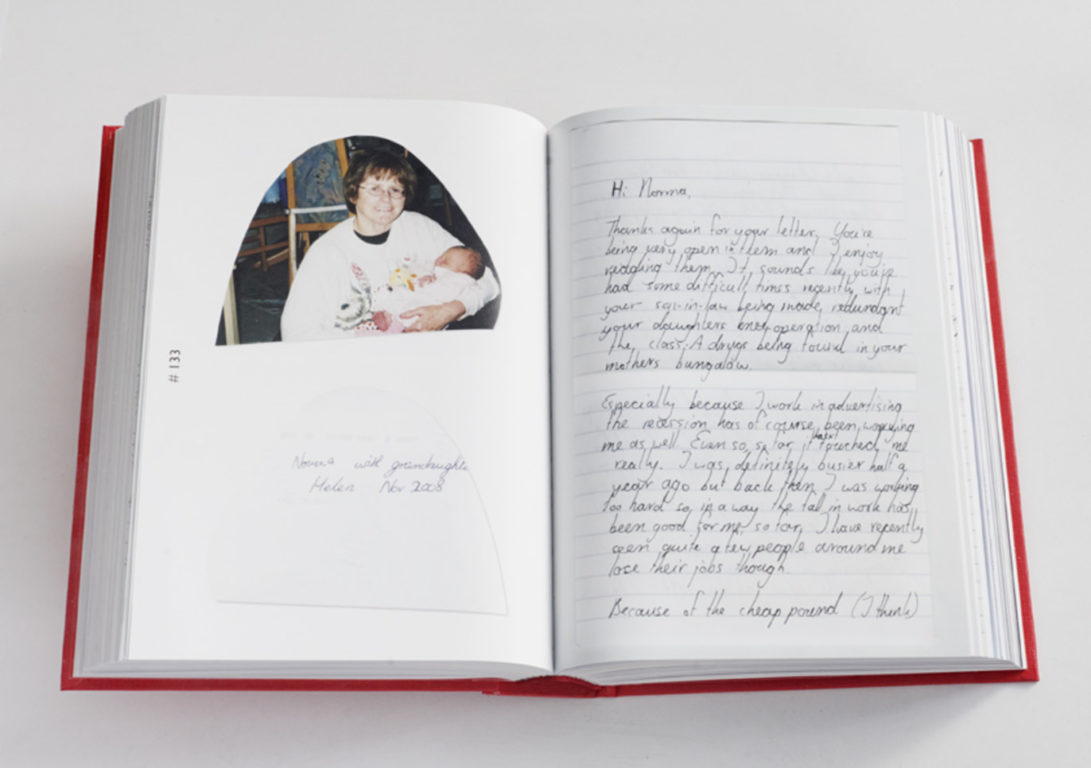 # 133
Norma with grandaughter
Helen Nov 2008
Hi Norma,
Thanks again for your letter. You're
being very open in them and I enjoy
reading them. It sounds like you've
had some difficult times recently with
your son-in-law being made redundant
your daughters knee operation and
the class A drugs being found in your
mothers bungalow.
Especially because I work in advertising
the recession has of course been worrying
me as well. Even so, so far it hasn't touched me
really. I was definitely busier half a
year ago but back then I was working
too hard so in a way the fall in work has
been good for me so far. I have recently
seen quite a few people around me
lose their jobs though.
Because of the cheap pound (I think)